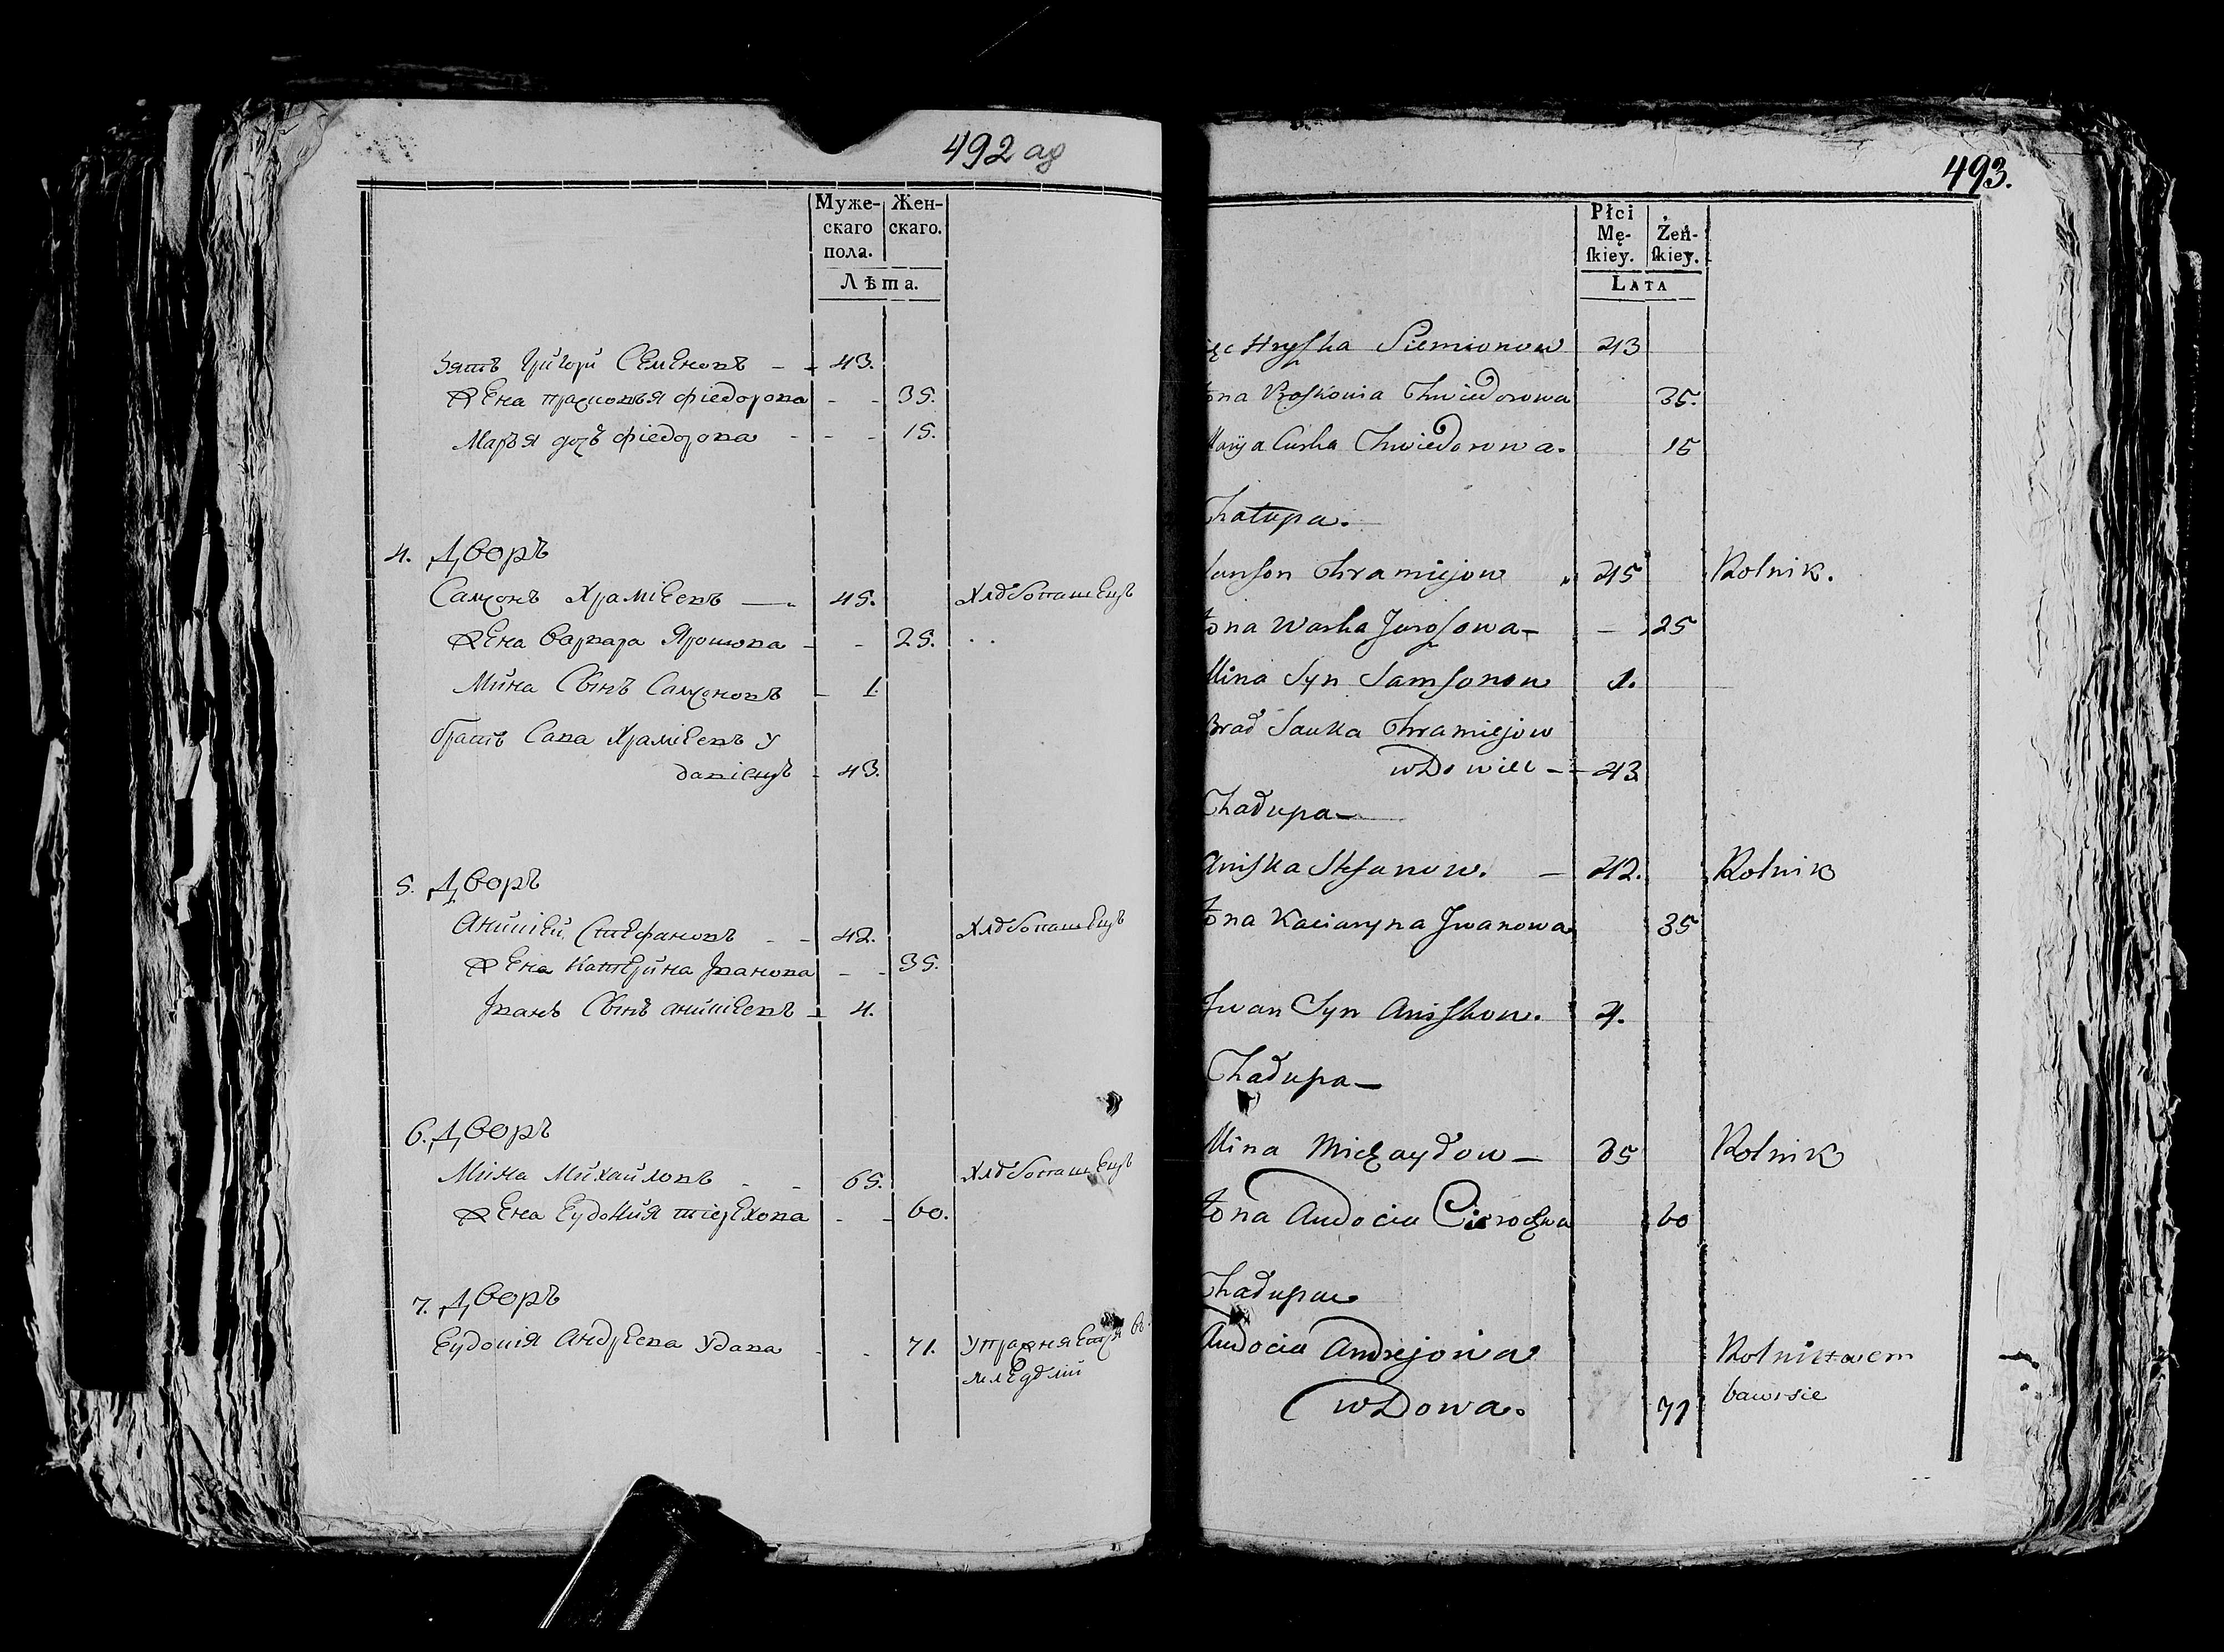 492 об
Муже-
скаго
пола.
Жен-
скаго.
Лѣта.
зять Григори Семеновъ - - 43.
жена прасковья фіедорова - - 35.
Марья дочь фіедорова - - - 15.
4. Дворъ
Самсонъ Храміеевъ — 45. Хлѣбопашецъ
жена Варвара Ярошова - - 25. . .
Мина Сынъ Самсоновъ - 1.
братъ Сава Храміеевъ у
давіецъ - 43.
5. Дворъ
Анипіей Стефановъ - - 42. Хлѣбопашецъ
жена Катерина Іванова - - 35.
Іванъ Сынъ анипіеевъ - 4.
6. Дворъ
Мина Михайловъ - - 65. Хлѣбопашецъ
жена Еудокия тіерехова - - 60.
7. Дворъ
Еудокія Андреева Удава - - 71. Упражняется въ.
493.
Płci
Mę-
ſkiey.
Żeń-
ſkiey.
LATA
ięc Hryſka Siemionow 43
żona Proſkowia Chwiedorowa 35.
Maryja Curka Chwiedorowa. 15
Chałupa.
Samſon Chramiejow 45 Rolnik.
żona Warka Jaroſowa — 25
Mina Syn Samſonow 1.
Brad Sauka Chramiejow
wDowiec — 43
Chałupa —
Aniſka Stefanow. — 42. Rolnik
żona Kaciaryna Jwanowa 35
Jwan Syn Aniſkow. 4.
Chałupa —
Mina Michayłow — 65 Rolnik
żona Audocia Cierochowa 60
Chałupa
Audocia Andrejowa Rolnictwem
wDowa. 71 bawi sie